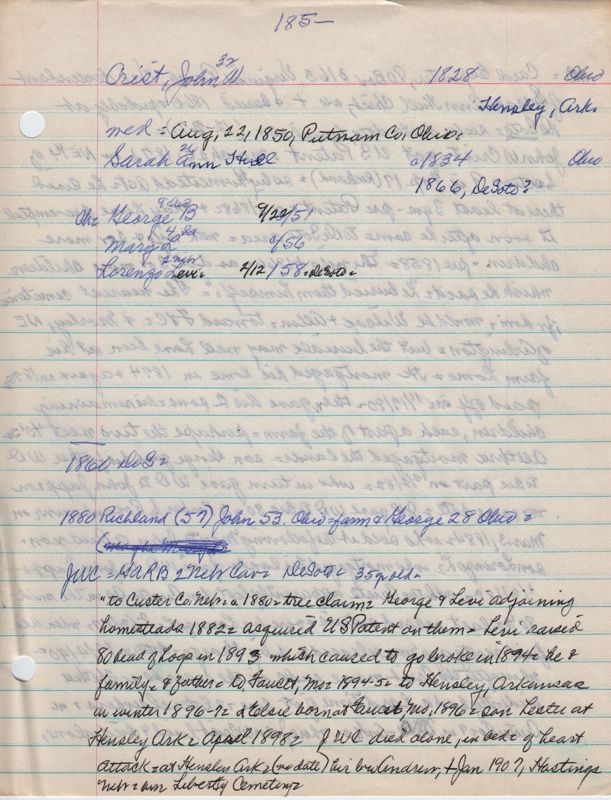 185—
Crist, John W 32 1828 Ohio
Hensley, Ark.
med = Aug, 22, 1850, Putnam Co, Ohio.
Sarah Ann Hull 26 c1834 Ohio
1866, DeSoto?
Ch = George B 9 Aug 9/22/51
Mary 4 c/56
Lorenzo Levi = 2/12/58 = DeSoto =
1860 DeS =
1880 Richland (57) John 53. Ohio = farm & George 28 Ohio =
JWC = HARB 2 Nebr Cav = DeSoto = 35 yr old =
"to Custer Co, Nebr = c 1880 = tree claim = George & Levi adjoining
homesteads 1882 = acquired US Patent on them = Levi raised
80 head of hogs in 1893 which caused to go broke in 1894 = he &
family = & father = to Faucet, Mo = 1894-5 = to Hensley, Arkansas
in winter 1896-7 = d Elsie born at Faucet, Mo, 1896 = son Lester at
Hensley Ark = April 1898 = JWC died alone, in bed = of heart
attack = at Hensley Ark = (no date) his bro Andrew, + Jan 1907, Hastings
Nebr = Liberty Cemetery